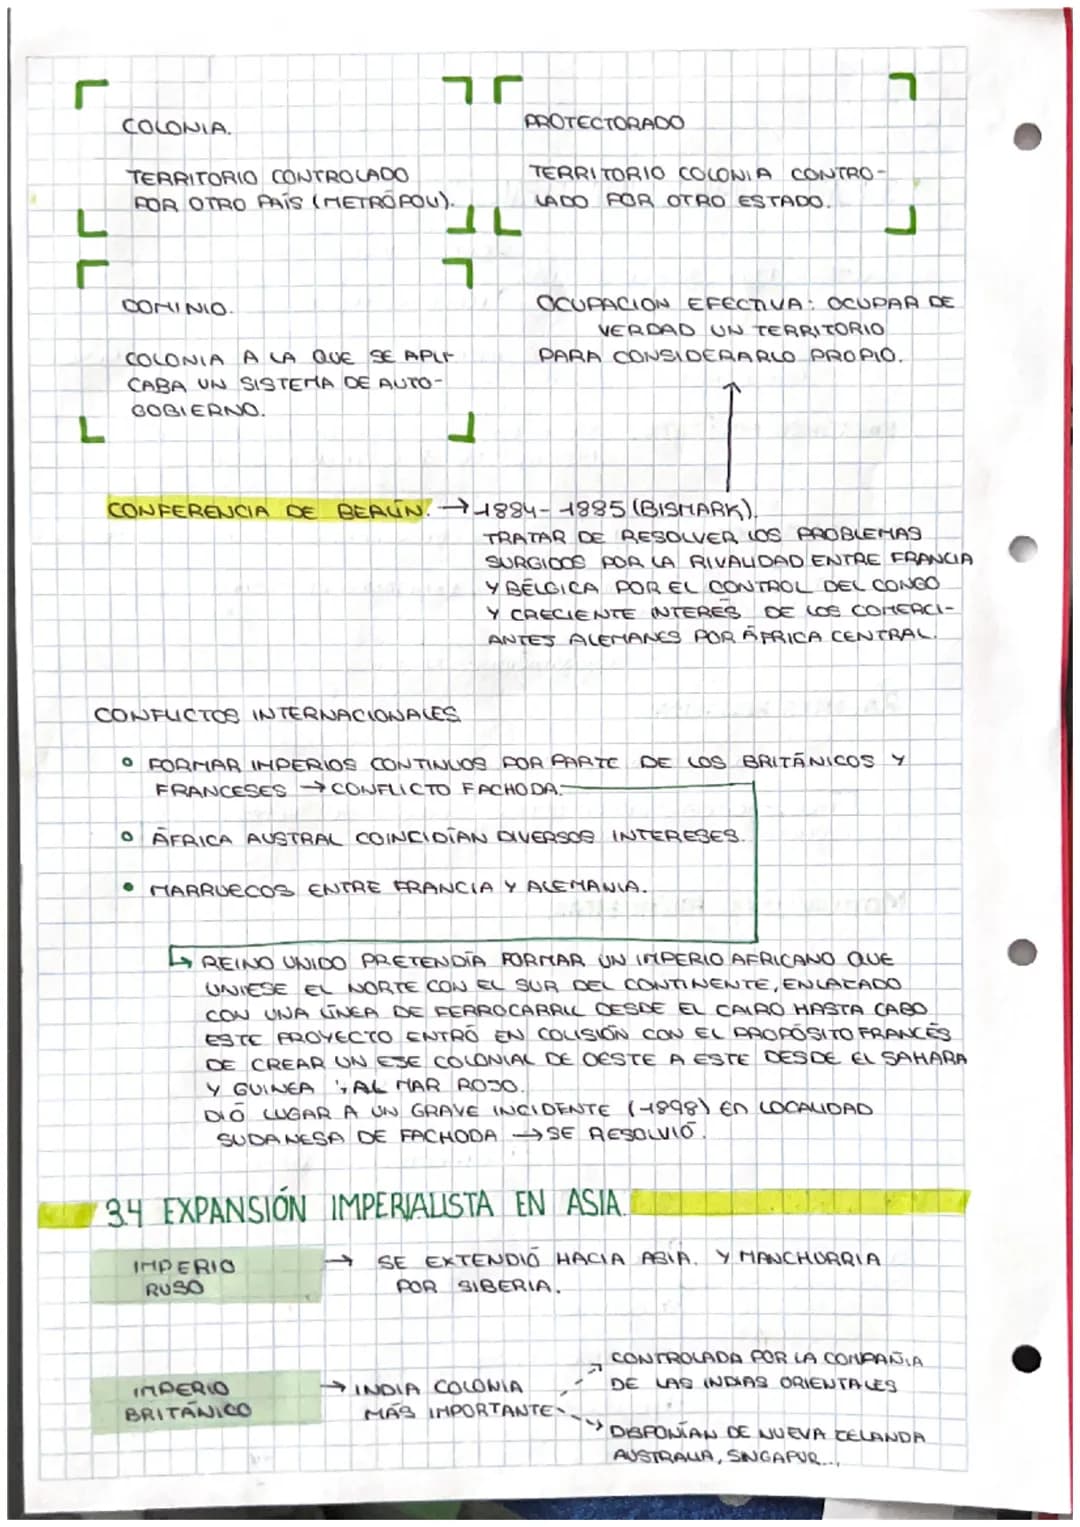 COLONIA.
TERRITORIO CONTROLADO
POR OTRO PAÍS (METRÓPOLI).
PROTECTORADO
TERRITORIO COLONIA CONTRO-
LADO POR OTRO ESTADO.
DOMINIO.
COLONIA A LA QUE SE APLI-
CABA UN SISTEMA DE AUTO-
GOBIERNO.
OCUPACION EFECTIVA: OCUPAR DE
VERDAD UN TERRITORIO
PARA CONSIDERARLO PROPIO.
CONFERENCIA DE BERLÍN. → 1884-1885 (BISMARK).
TRATAR DE RESOLVER LOS PROBLEMAS
SURGIDOS POR LA RIVALIDAD ENTRE FRANCIA
Y BÉLGICA POR EL CONTROL DEL CONGO
Y CRECIENTE INTERÉS DE LOS COMERCI-
ANTES ALEMANES POR ÁFRICA CENTRAL.
CONFLICTOS INTERNACIONALES
• FORMAR IMPERIOS CONTINUOS POR PARTE DE LOS BRITÁNICOS Y
FRANCESES → CONFLICTO FACHODA.
• ÁFRICA AUSTRAL COINCIDÍAN DIVERSOS INTERESES.
• MARRUECOS ENTRE FRANCIA Y ALEMANIA.
↳ REINO UNIDO PRETENDÍA FORMAR UN IMPERIO AFRICANO QUE
UNIESE EL NORTE CON EL SUR DEL CONTINENTE, ENLAZADO
CON UNA LÍNEA DE FERROCARRIL DESDE EL CAIRO HASTA CABO
ESTE PROYECTO ENTRÓ EN COLISIÓN CON EL PROPÓSITO FRANCÉS
DE CREAR UN EJE COLONIAL DE OESTE A ESTE DESDE EL SAHARA
Y GUINEA AL MAR ROJO.
DIÓ LUGAR A UN GRAVE INCIDENTE (1898) EN LOCALIDAD
SUDANESA DE FACHODA → SE RESOLVIÓ.
3.4 EXPANSIÓN IMPERIALISTA EN ASIA.
IMPERIO
RUSO
→ SE EXTENDIÓ HACIA ASIA. Y MANCHURRIA
POR SIBERIA.
IMPERIO
BRITÁNICO
→ INDIA COLONIA
MÁS IMPORTANTE
CONTROLADA POR LA COMPAÑIA
DE LAS INDIAS ORIENTALES
DISPONÍAN DE NUEVA ZELANDA
AUSTRALIA, SINGAPUR...,